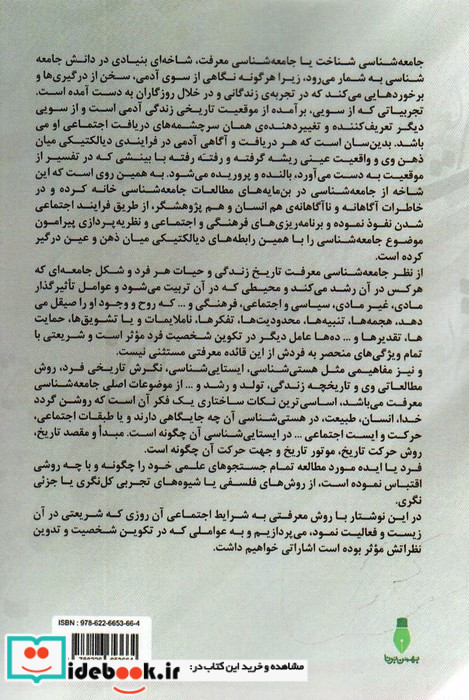 جامعه‌شناسی شناخت یا جامعه‌شناسی معرفت، شاخه‌ای بنیادی در دانش جامعه
شناسی به شمار می‌رود، زیرا هرگونه نگاهی از سوی آدمی، سخن از درگیری‌ها و
برخوردهایی می‌کند که در تجربه‌ی زندگانی و در خلال روزگاران به دست آمده است.
تجربیاتی که از سویی، برآمده از موقعیت تاریخی زندگی آدمی است و از سویی
دیگر تعریف‌کننده و تغییردهنده‌ی همان سرچشمه‌های دریافت اجتماعی او می
باشد. بدین‌سان است که هر دریافت و آگاهی آدمی در فرایندی دیالکتیکی میان
ذهن وی و واقعیت عینی ریشه گرفته و رفته رفته با بینشی که در تفسیر از
موقعیت به دست می‌آورد، بالنده و پروریده می‌شود. به همین روی است که این
شاخه از جامعه‌شناسی در بن‌مایه‌های مطالعات جامعه‌شناسی خانه کرده و در
خاطرات آگاهانه و ناآگاهانه‌ی هم انسان و هم پژوهشگر، از طریق فرایند اجتماعی
شدن نفوذ نموده و برنامه‌ریزی‌های فرهنگی و اجتماعی و نظریه‌پردازی پیرامون
موضوع جامعه‌شناسی را با همین رابطه‌های دیالکتیکی میان ذهن و عین درگیر
کرده است.
از نظر جامعه‌شناسی معرفت تاریخ زندگی و حیات هر فرد و شکل جامعه‌ای که
هرکس در آن رشد می‌کند و محیطی که در آن تربیت می‌شود و عوامل تأثیرگذار
مادی، غیر مادی، سیاسی و اجتماعی، فرهنگی و ... که روح و وجود او را صیقل می
دهد، هجمه‌ها، تنبیه‌ها، محدودیت‌ها، تفکرها، ناملایمات و یا تشویق‌ها، حمایت
ها، تقدیرها و ... ده‌ها عامل دیگر در تکوین شخصیت فرد مؤثر است و شریعتی با
تمام ویژگی‌های منحصر به فردش از این قائده معرفتی مستثنی نیست.
و نیز مفاهیمی مثل هستی‌شناسی، ایستایی‌شناسی، نگرش تاریخی فرد، روش
مطالعاتی وی و تاریخچه زندگی، تولد و رشد و ... از موضوعات اصلی جامعه‌شناسی
معرفت می‌باشد، اساسی‌ترین نکات ساختاری یک فکر آن است که روشن گردد
خدا، انسان، طبیعت، در هستی‌شناسی آن چه جایگاهی دارند و یا طبقات اجتماعی،
حرکت و ایست اجتماعی ... در ایستایی‌شناسی آن چگونه است. مبدأ و مقصد تاریخ،
روش حرکت تاریخ، موتور تاریخ و جهت حرکت آن چگونه است.
فرد یا ایده مورد مطالعه تمام جستجوهای علمی خود را چگونه و با چه روشی
اقتباس نموده است، از روش‌های فلسفی یا شیوه‌های تجربی کل‌نگری یا جزئی
نگری.
در این نوشتار با روش معرفتی به شرایط اجتماعی آن روزی که شریعتی در آن
زیست و فعالیت نمود، می‌پردازیم و به عواملی که در تکوین شخصیت و تدوین
نظراتش مؤثر بوده است اشاراتی خواهیم داشت.
ISBN : 978-622-6653-66-4
بهمن برنا
idebook.ir
مشاهده و خرید این کتاب در: